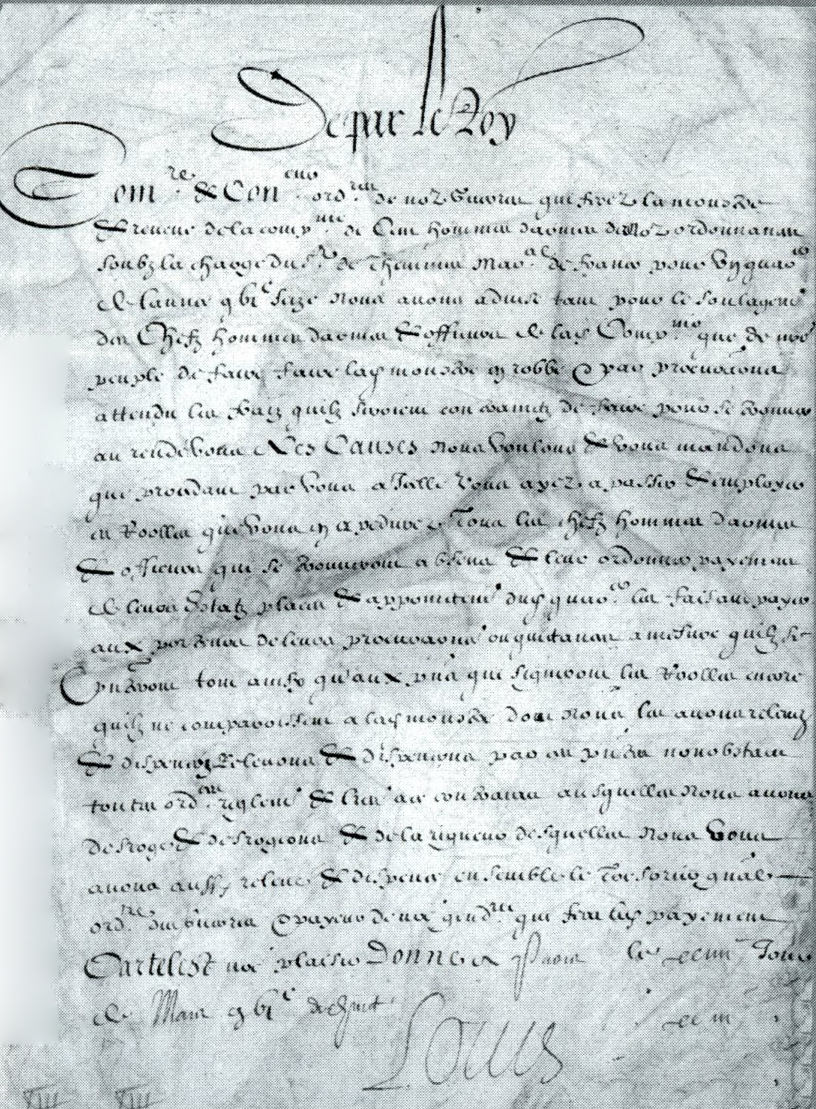 De par le Roy
Com.re & Con ord.re de noz guerres qui ferez la monstre
& reveue de la comp.nie de Cent hommes darmes de noz ordonnances
soubz la charge du s.r de Themines Mar.al de france pour
de lannee gbi.c seize Nous avons advise tant pour le soulagem.t
des Chefz hommes darmes & officiers de lad Comp.nie que de nre
peuple de faire faire lad monstre en robbe & par procurations
attendu les fraiz quilz seroient contrainctz de faire pour se trouver
au rendevous A Ces Causes Nous voulons & vous mandons
que procedant par vous a Icelle vous ayez a passer & employer
en Roolles que vous en expedirez Tous les chefz hommes darmes
& officiers qui se trouveront absens & leur ordonner payement
de leurs Estatz places & appointem.s dud quar.er les faisant payer
aux porteurs de leurs procurations ou quitances a mesure quilz se
tout ainsy qu'aux pns qui signeront les Roolles encore
quilz ne comparoissent a lad monstre dont Nous les avons relevez
& dispensez Relevons & dispensons par ces pntes nonobstant
toutes ord.ces reglem.s & lres a ce contraires ausquelles Nous avons
desroge & desrogeons & de la rigueur desquelles Nous Vous
avons aussy releve & dispense ensemble le Tresorier gnal
ord.re des guerres & payeur de nre gend.rie qui fera led payement
Car tel est nre plaisir Donne a Paris le Jour
de Mars gbi.c dixhuit
Louis